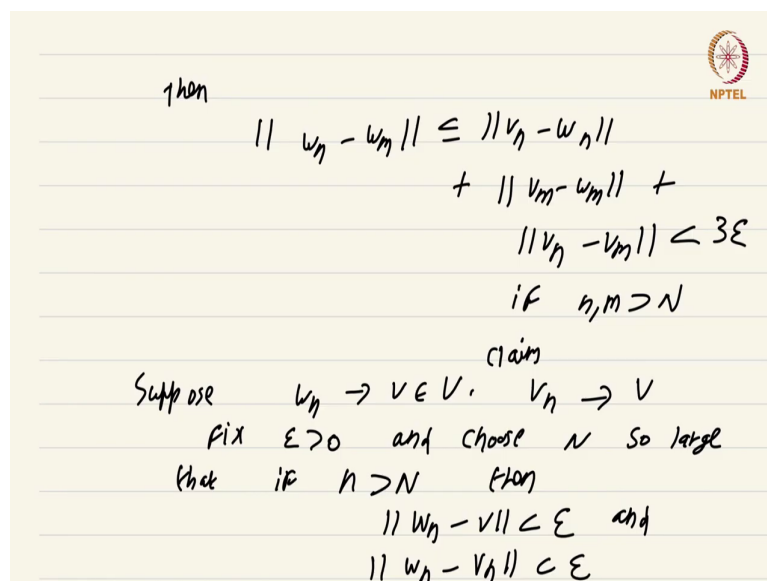 NPTEL
then
|| wₙ - wₘ || ≤ || vₙ - wₙ ||
+ || vₘ - wₘ || +
|| vₙ - vₘ || < 3ε
if n,m > N
claim
Suppose wₙ → v ∈ V. vₙ → v
fix ε>0 and choose N so large
that if n > N then
|| wₙ - v || < ε and
|| wₙ - vₙ || < ε